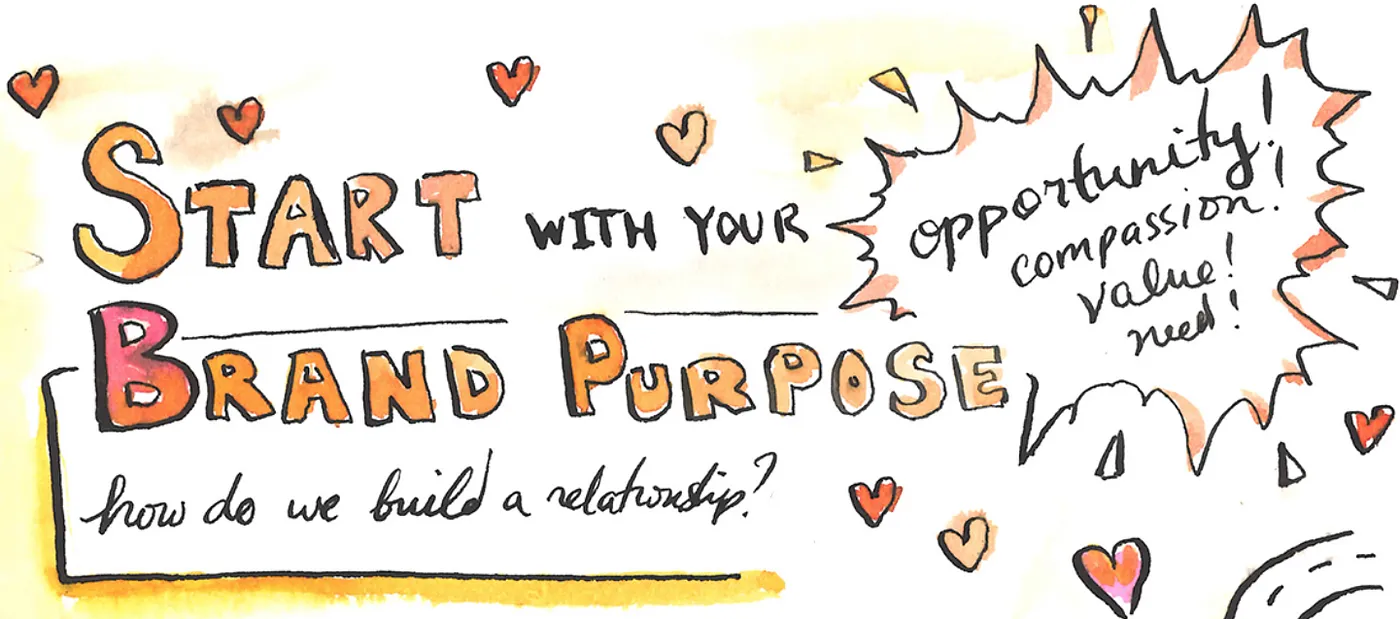 START WITH YOUR
BRAND PURPOSE
how do we build a relationship?
opportunity!
compassion!
value!
need!